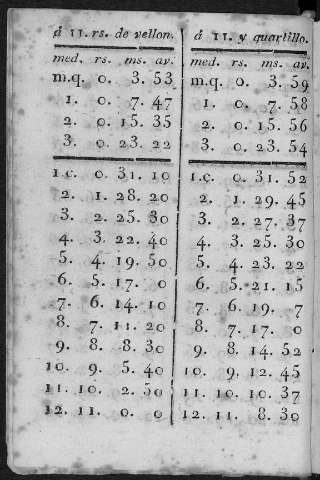 á 11. rs. de vellon.
med. rs. ms. av.
m.q. 0. 3. 53
1. 0. 7. 47
2. 0. 15. 35
3. 0. 23. 22
1.c. 0. 31. 10
2. 1. 28. 20
3. 2. 25. 30
4. 3. 22. 40
5. 4. 19. 50
6. 5. 17. 0
7. 6. 14. 10
8. 7. 11. 20
9. 8. 8. 30
10. 9. 5. 40
11. 10. 2. 50
12. 11. 0. 0
á 11. y quartillo.
med. rs. ms. av.
m.q. 0. 3. 59
1. 0. 7. 58
2. 0. 15. 56
3. 0. 23. 54
1.c. 0. 31. 52
2. 1. 29. 45
3. 2. 27. 37
4. 3. 25. 30
5. 4. 23. 22
6. 5. 21. 15
7. 6. 19. 7
8. 7. 17. 0
9. 8. 14. 52
10. 9. 12. 45
11. 10. 10. 37
12. 11. 8. 30